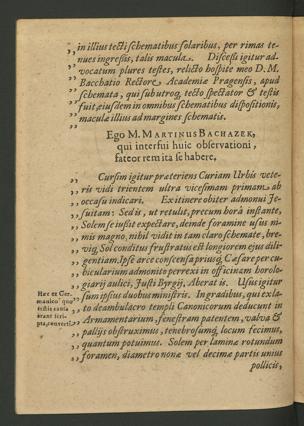 ,, in illius tecti schematibus solaribus, per rimas te-
,, nues ingressis, talis macula. Discessi igitur ad-
,, vocatum plures testes, relicto hospite meo D. M.
,, Bacchatio Rectore Academiæ Pragensis, apud
,, schemata, qui sub utroq, tecto spectator & testis
,, fuit, eiusdem in omnibus schematibus dispositionis,
maculæ illius ad margines schematis.
Ego M. MARTINUS BACHAZEK,
qui interfui huic observationi,
fateor rem ita se habere,
,, Cursim igitur præteriens Curiam Urbis vete-
,, ris vidi trientem ultra vicesimam primam ab
,, occasu indicari. Ex itinere obiter admonui Je-
,, suitam: Sed is, ut retulit, precum horâ instante,
,, Solem se iussit expectare, deinde foramine usus ni-
,, mis magno, nihil vidit in tam claro schemate, bre-
,, viq; Sol conditus frustratus est longiorem ejus dili-
,, gentiam. Ipse arce conscensa priusq; Cæsare per cu-
,, bicularium admonito perrexi in officinam horolo-
,, giarij aulici, Justi Byrgij, Aberat is. Usus igitur
,, sum ipsius duobus ministris. In gradibus, que ex la-
,, to deambulacro templi Canonicorum deducunt in
,, Armamentarium, fenestram patentem, valva &
,, pallijs obstruximus, tenebrosumq; locum fecimus,
,, quantum potuimus. Solem per laminæ rotundum
,, foramen, diametro non æ vel decimæ partis unius
pollicis,
Hæc ex Ger-
manico quo
testis causa
erant scri-
pta, converti.